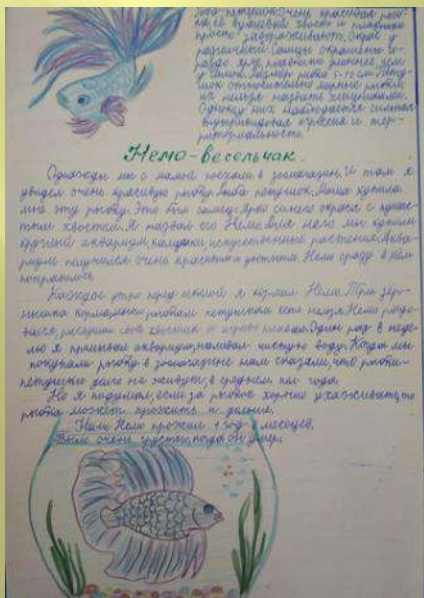 Рыба-петушок. Очень красивая рыб-
ка, её вуалевый хвост и плавники
просто завораживают. Окрас у
различный. Самцы окрашены го-
раздо ярче, плавники длиннее, чем
у самок. Размер рыбы 5-10 см. Пету-
шок относительно мирные рыбки,
их нельзя назвать хищниками.
Однако у них наблюдается сильная
внутривидовая агрессия и тер-
риториальность.
Немо-весельчак.
Однажды мы с мамой поехали в зоомагазин. И там я
увидел очень красивую рыбку. Рыба петушок. Мама купила
мне эту рыбку. Это был самец. Ярко синего окраса с пушис-
тым хвостом. Я назвал его Немо. Для него мы купили
круглый аквариум, камушки, искусственные растения. Аква-
риум получился очень красивым и уютным. Немо сразу в нём
понравилось.
Каждое утро перед школой я кормил Немо. Три зёр-
нышка кормлению рыбкам петушкам есть нельзя. Немо радо-
вался, распушал свой хвостик и играво плавал. Один раз в неде-
лю я промывал аквариум, наливал чистую воду. Когда мы
покупали рыбку в зоомагазине нам сказали, что рыбки-
петушки долго не живут, в среднем пол года.
Но я подумал, если за рыбкой хорошо ухаживать, то
рыбка может прожить и дольше.
Наш Немо прожил 1 год и месяцев.
Было очень грустно, когда он умер.